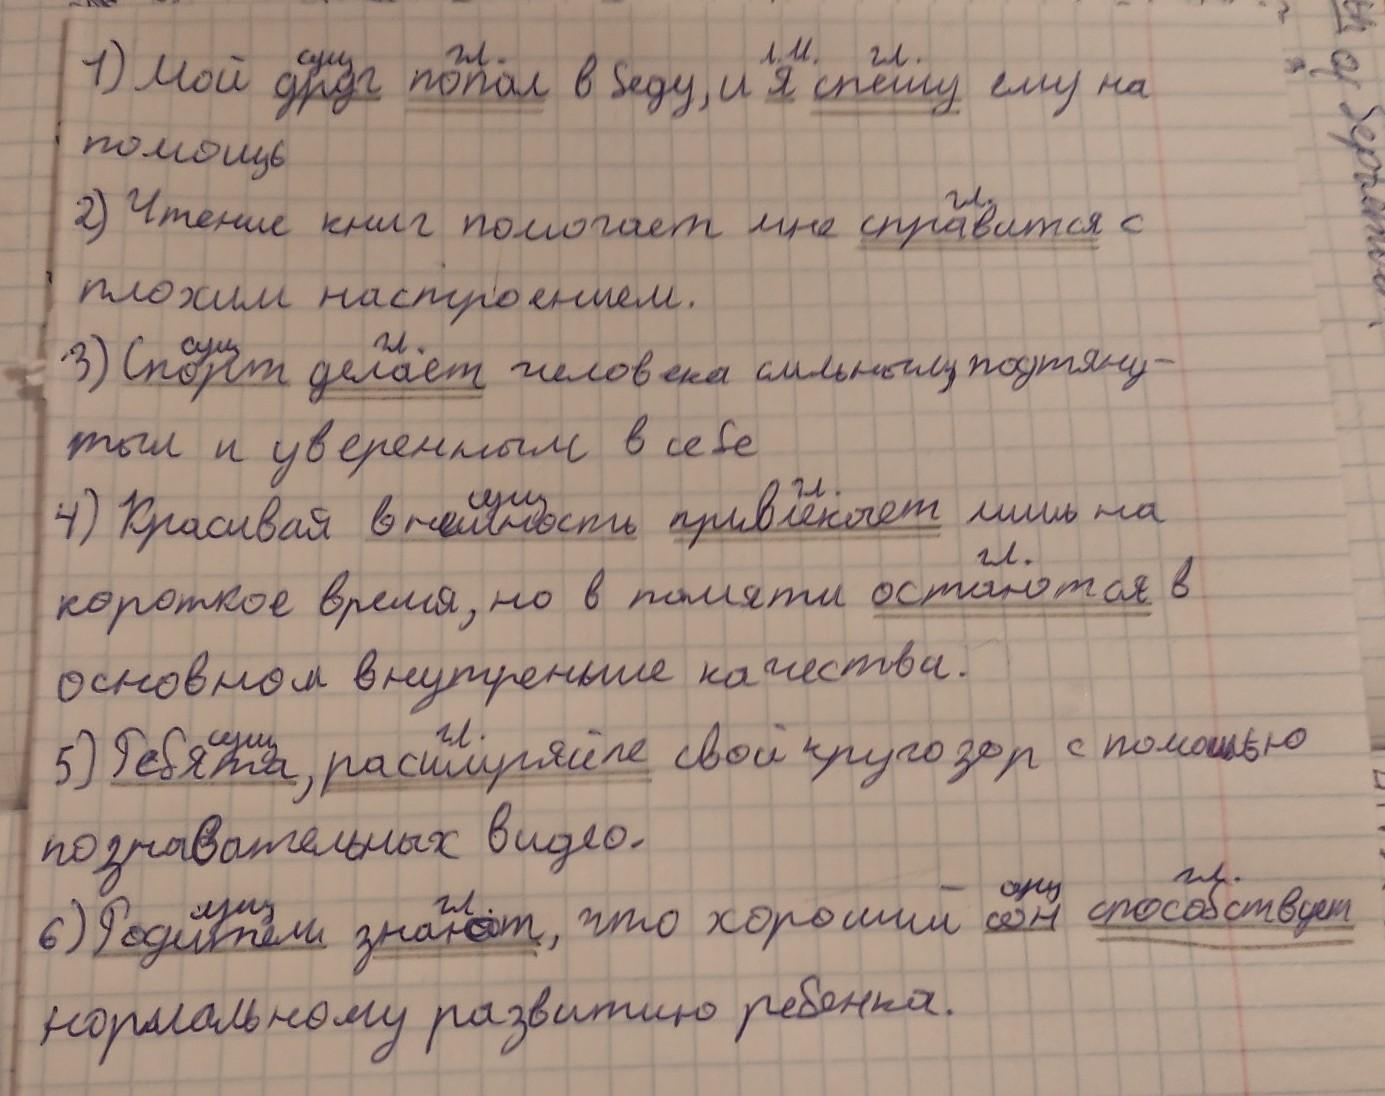 сущ гл. л.м. гл.
1) Мой друг попал в беду, и я спешу ему на
помощь
гл.
2) Чтение книг помогает мне справится с
плохим настроением.
сущ гл.
3) Спорт делает человека сильным, подтяну-
тым и уверенным в себе
сущ гл.
4) Красивая внешность привлекает лишь на
гл.
короткое время, но в памяти останются в
основном внутреньие качества.
сущ гл.
5) Ребята, расширяйте свой кругозор с помощью
познавательных видео.
сущ гл. сущ гл.
6) Родители знают, что хороший сон способствует
нормальному развитию ребенка.